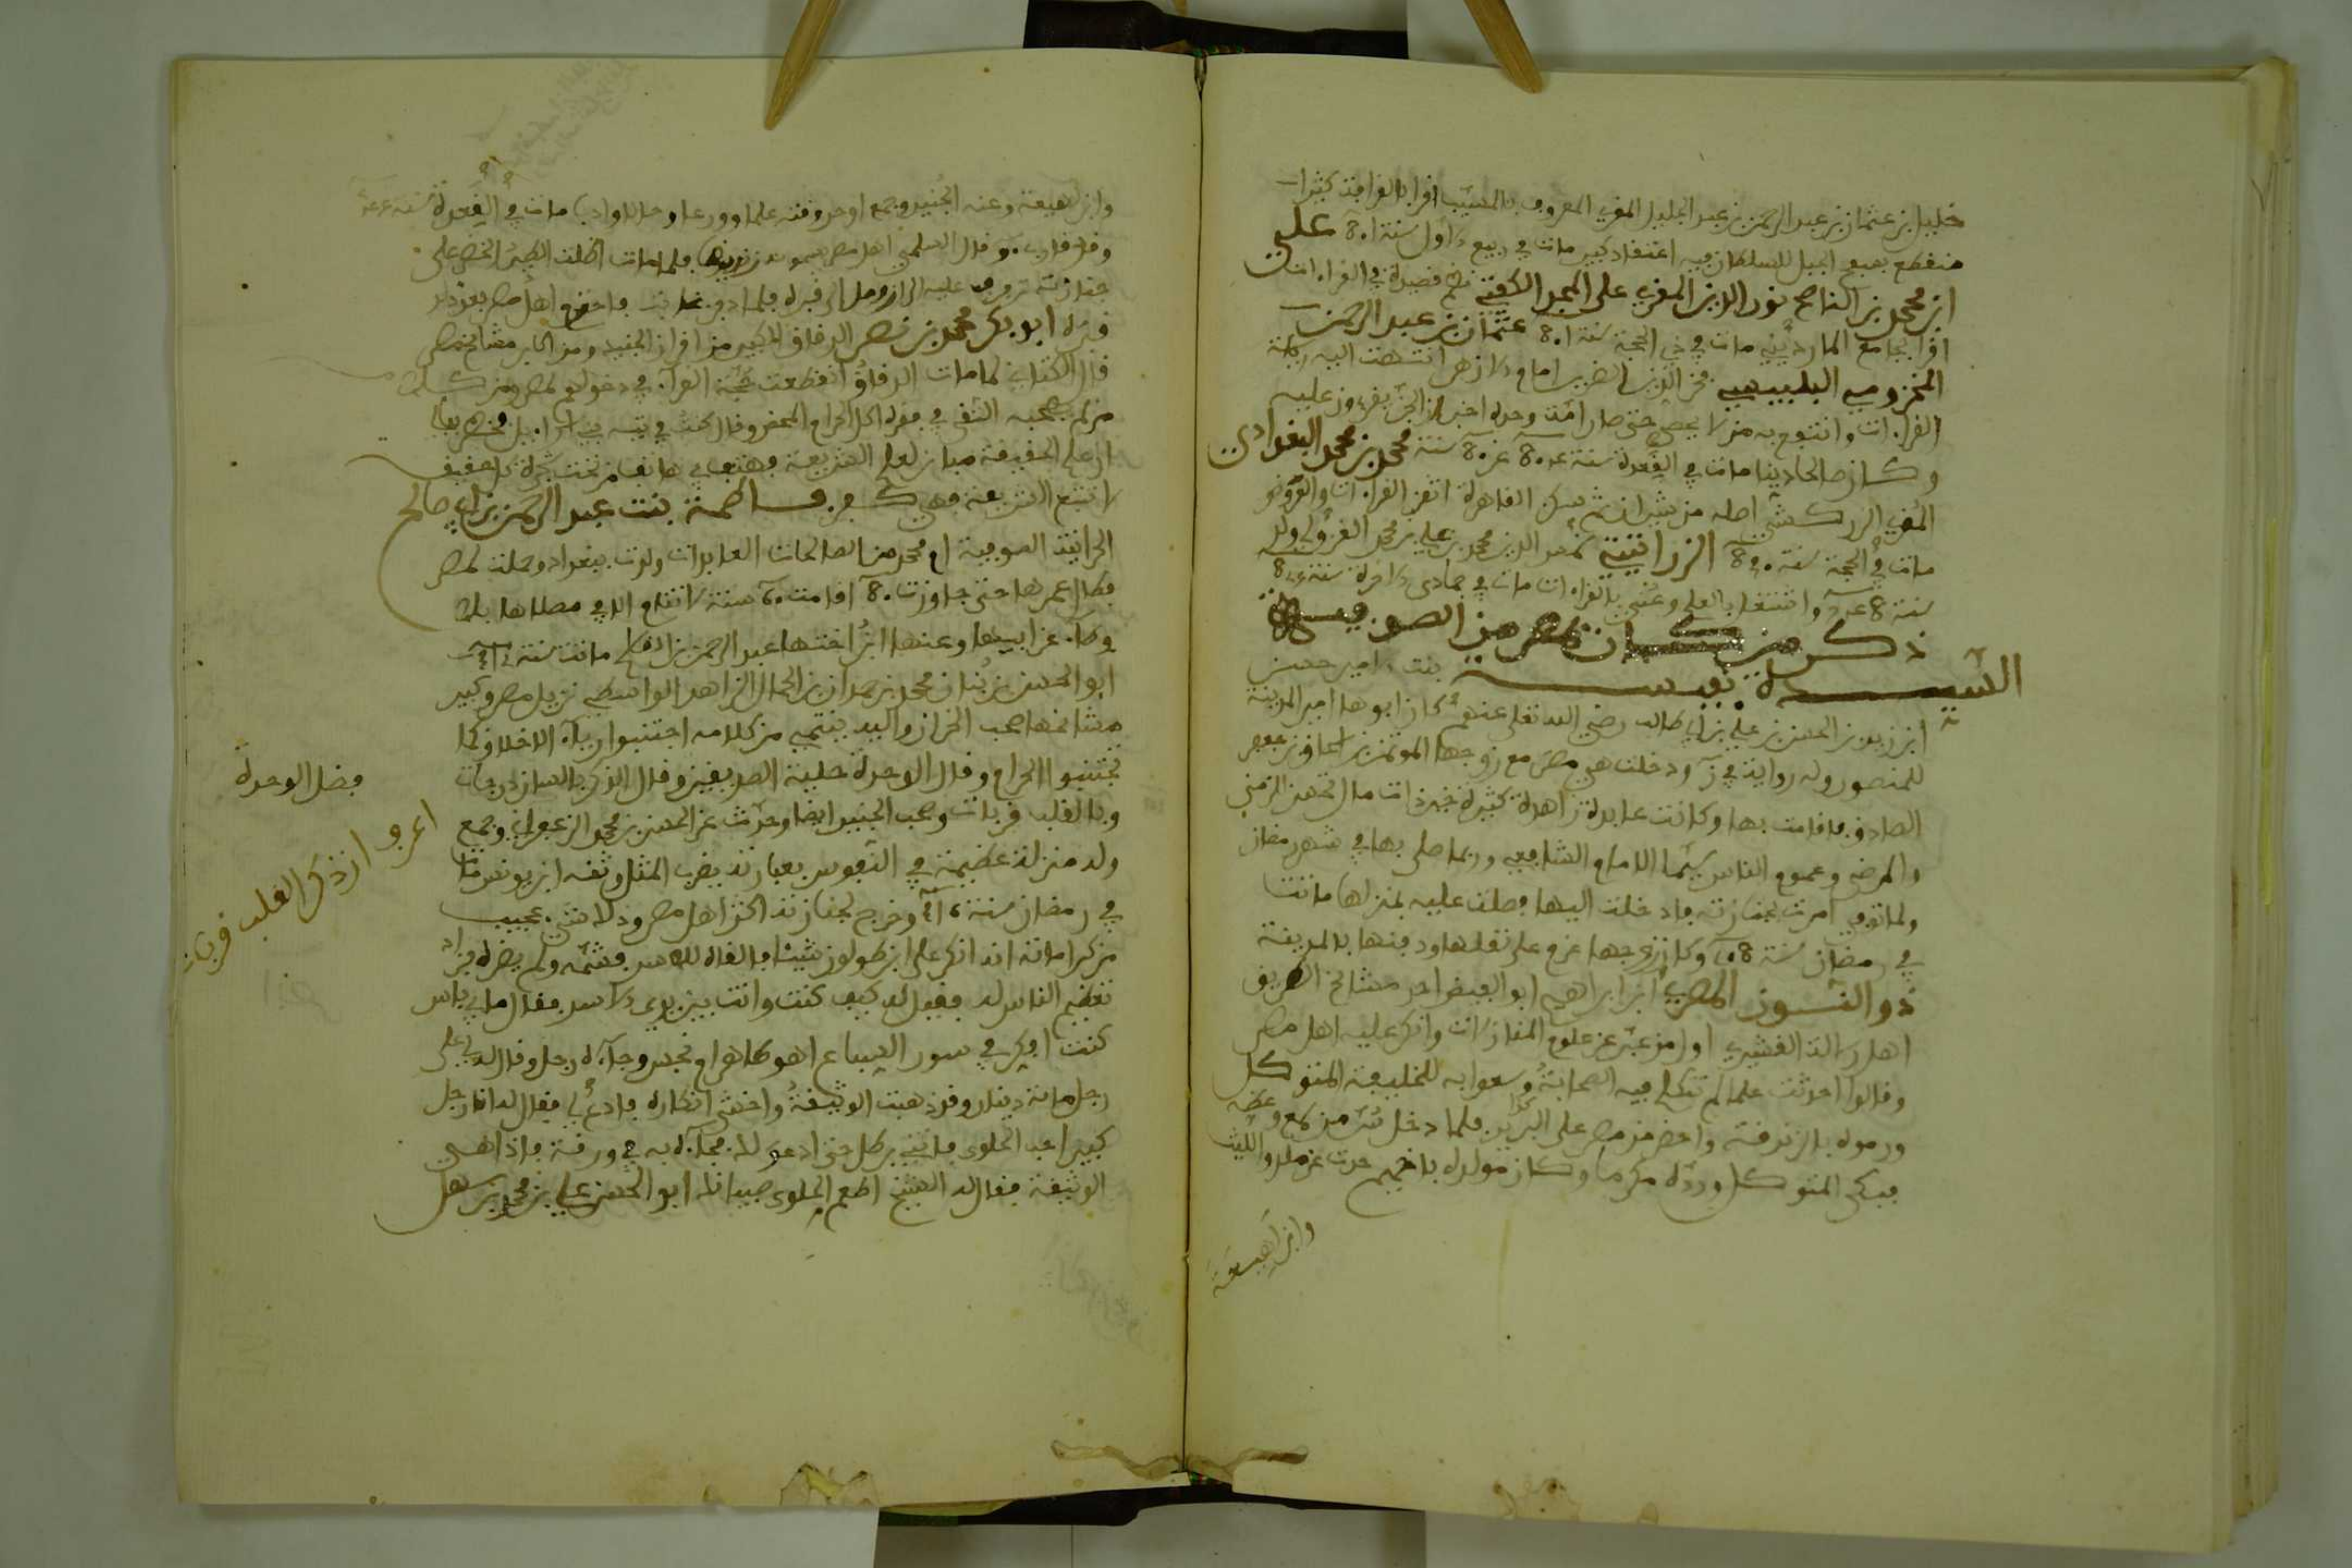 خليل بن عثمان بن عبد الرحمن بن عبد الجليل المقرئ المعروف بالمشبب اقرا بالقرافة كثيرا
منقطع بسفح الجبل للسلطان فيه اعتقاد كبير مات في ربيع الاول سنة 801 علي
ابن محمد بن الناصح نور الدين المقرئ على المجد الكفتي نظم قصيدة في القراءات
اقرا بجامع المارديني مات في ذي الحجة سنة 801 عثمان بن عبد الرحمن
المخزومي البلبيسي فخر الدين الضرير امام الازهر انتهت اليه رياسة
القراءات وانتفع به من لا يحصى حتى صار امة وحده اخبر ان الجن يقرءون عليه
وكان صالحا دينا مات في القعدة سنة 804 عن 80 سنة محمد بن محمد البغدادي
المقرئ الزركشي اصله من شيراز ثم سكن القاهرة اتقن القراءات والعروض
مات في الحجة سنة الزراتيتي شمس الدين محمد بن علي بن محمد الغزولي ولد
سنة واشتغل بالعلم وعني بالقراءات مات في جمادى الاخرة سنة
ذكر من كان بمصر من الصوفية
السيدة نفيسة بنت الامير حسن
ابن زيد بن الحسن بن علي بن ابي طالب رضي الله تعلى عنهم كان ابوها امير المدينة
للمنصور وله رواية في ودخلت هي مصر مع زوجها المؤتمن بن اسحاق بن جعفر
الصادق فاقامت بها وكانت عابدة زاهدة كثيرة خير ذات مال تحسن الزمنى
والمرضى وعموم الناس سيما الامام الشافعي وربما صلى بها في شهر رمضان
ولما توفي امرت بجنازته فادخلت اليها فصلت عليه بمنزلها ماتت
في رمضان سنة وكان زوجها عزم على نقلها ودفنها بالمدينة
ذو النون المصري ابن ابراهيم ابو الفيض احد مشائخ الطريق
اهل رسالة القشيري اول من عبر عن علوم المنازلات وانكر عليه اهل مصر
وقالوا احدثت علما لم تتكلم فيه الصحابة وسعوا به للخليفة المتوكل
ورموه بالزندقة واحضر من مصر على البريد فلما دخل سر من راى وعظه
فبكى المتوكل ورده مكرما وكان مولده باخميم حدث عن ملك والليث
وابن لهيعة
وابن لهيعة وعنه الجنيد وجمع اوحد وقته علما وورعا وحالا وادبا مات في القعدة سنة
وقد قارب وقال السلمي اهل مصر يسمونه زنديقا فلما مات اظلت الطير الخضر على
جنازته ترفرف عليه الى ان وصل الى قبره فلما دفن غابت فاحترم اهل مصر بعد ذلك
قبره ابو بكر محمد بن نصر الدقاق الكبير من اقران الجنيد ومن اكابر مشائخ مصر
قال الكتاني لما مات الدقاق انقطعت حجة الفقراء في دخولهم لمصر ومن كلامه
من لم يصحبه التقى في فقره اكل الحرام المحض وقال كنت في تيه بني اسراءيل فخطر ببالي
ان علم الحقيقة مباين لعلم الشريعة فهتف بي هاتف من تحت شجرة كل حقيقة
لا تتبع الشريعة فهي كفر فاطمة بنت عبد الرحمن بن ابي صالح
الحرانية الصوفية ام محمد من الصالحات العابدات ولدت ببغداد وحملت لمصر
فطال عمرها حتى جاوزت 80 اقامت 60 سنة لا تنام الا في مصلاها بلا
وطاء عن ابيها وعنها ابن اختها عبد الرحمن بن القاسم ماتت سنة
ابو الحسن بن بنان محمد بن حمدان بن الحمال الزاهد الواسطي نزيل مصر وكبير
مشائخها صحب الخراز واليه ينتمي من كلامه اجتنبوا رياء الاخلاق كما
تجتنبوا الحرام وقال الوحدة حلية الصديقين وقال الذكر باللسان درجات
وبالقلب قربات وصحب الجنيد ايضا وحدث عن الحسن بن محمد الزعفراني وجمع
وله منزلة عظيمة في النفوس بعبارته يضرب المثل وثقه ابن يونس مات
في رمضان سنة وخرج بجنازته اكثر اهل مصر وذلك شيء عجيب
من كراماته انه انكر على ابن طولون شيئا فالقاه للاسد فشمه ولم يضره فزاد
تعظيم الناس له فقيل له كيف كنت وانت بين يدي الاسد فقال ما بي باس
كنت افكر في سور السباع اهو طاهر ام نجس وجاءه رجل وقال لي على
رجل مائة دينار وقد ذهبت الوثيقة واخشى انكاره فادع لي فقال له انا رجل
كبير احب الحلوى فاتني برطل حتى ادعو لك فجاءه به في ورقة فاذا هي
الوثيقة فقال له الشيخ اطعم الحلوى صبيانك ابو الحسن علي بن محمد بن سهل
فضل الوحدة
اعرف ان ذكر القلب قربات